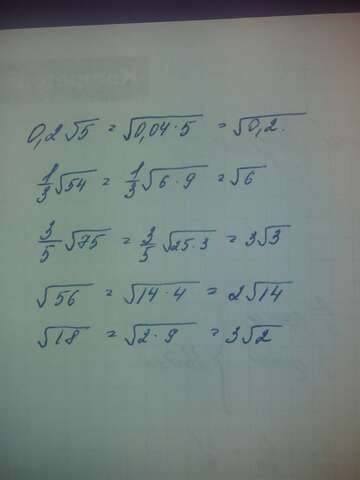 0,2√5 = √0,04·5 = √0,2.
1/3√54 = 1/3√6·9 = √6
3/5√75 = 3/5√25·3 = 3√3
√56 = √14·4 = 2√14
√18 = √2·9 = 3√2